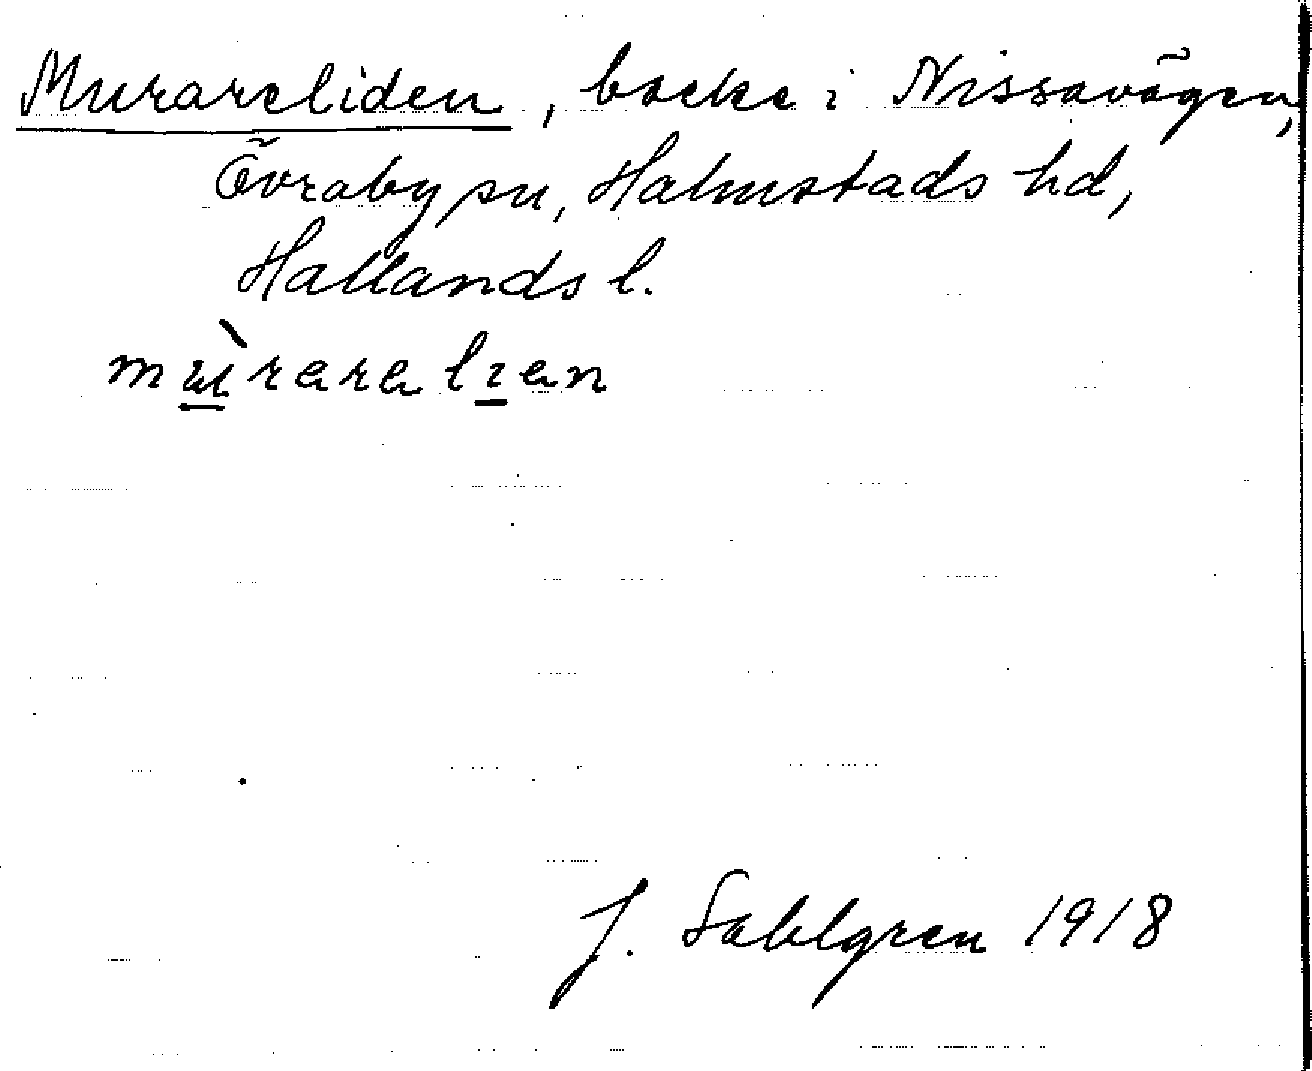 Murareliden, backe i Nissavägen,
Övraby sn, Halmstads hd,
Hallands l.
J. Sahlgren 1918